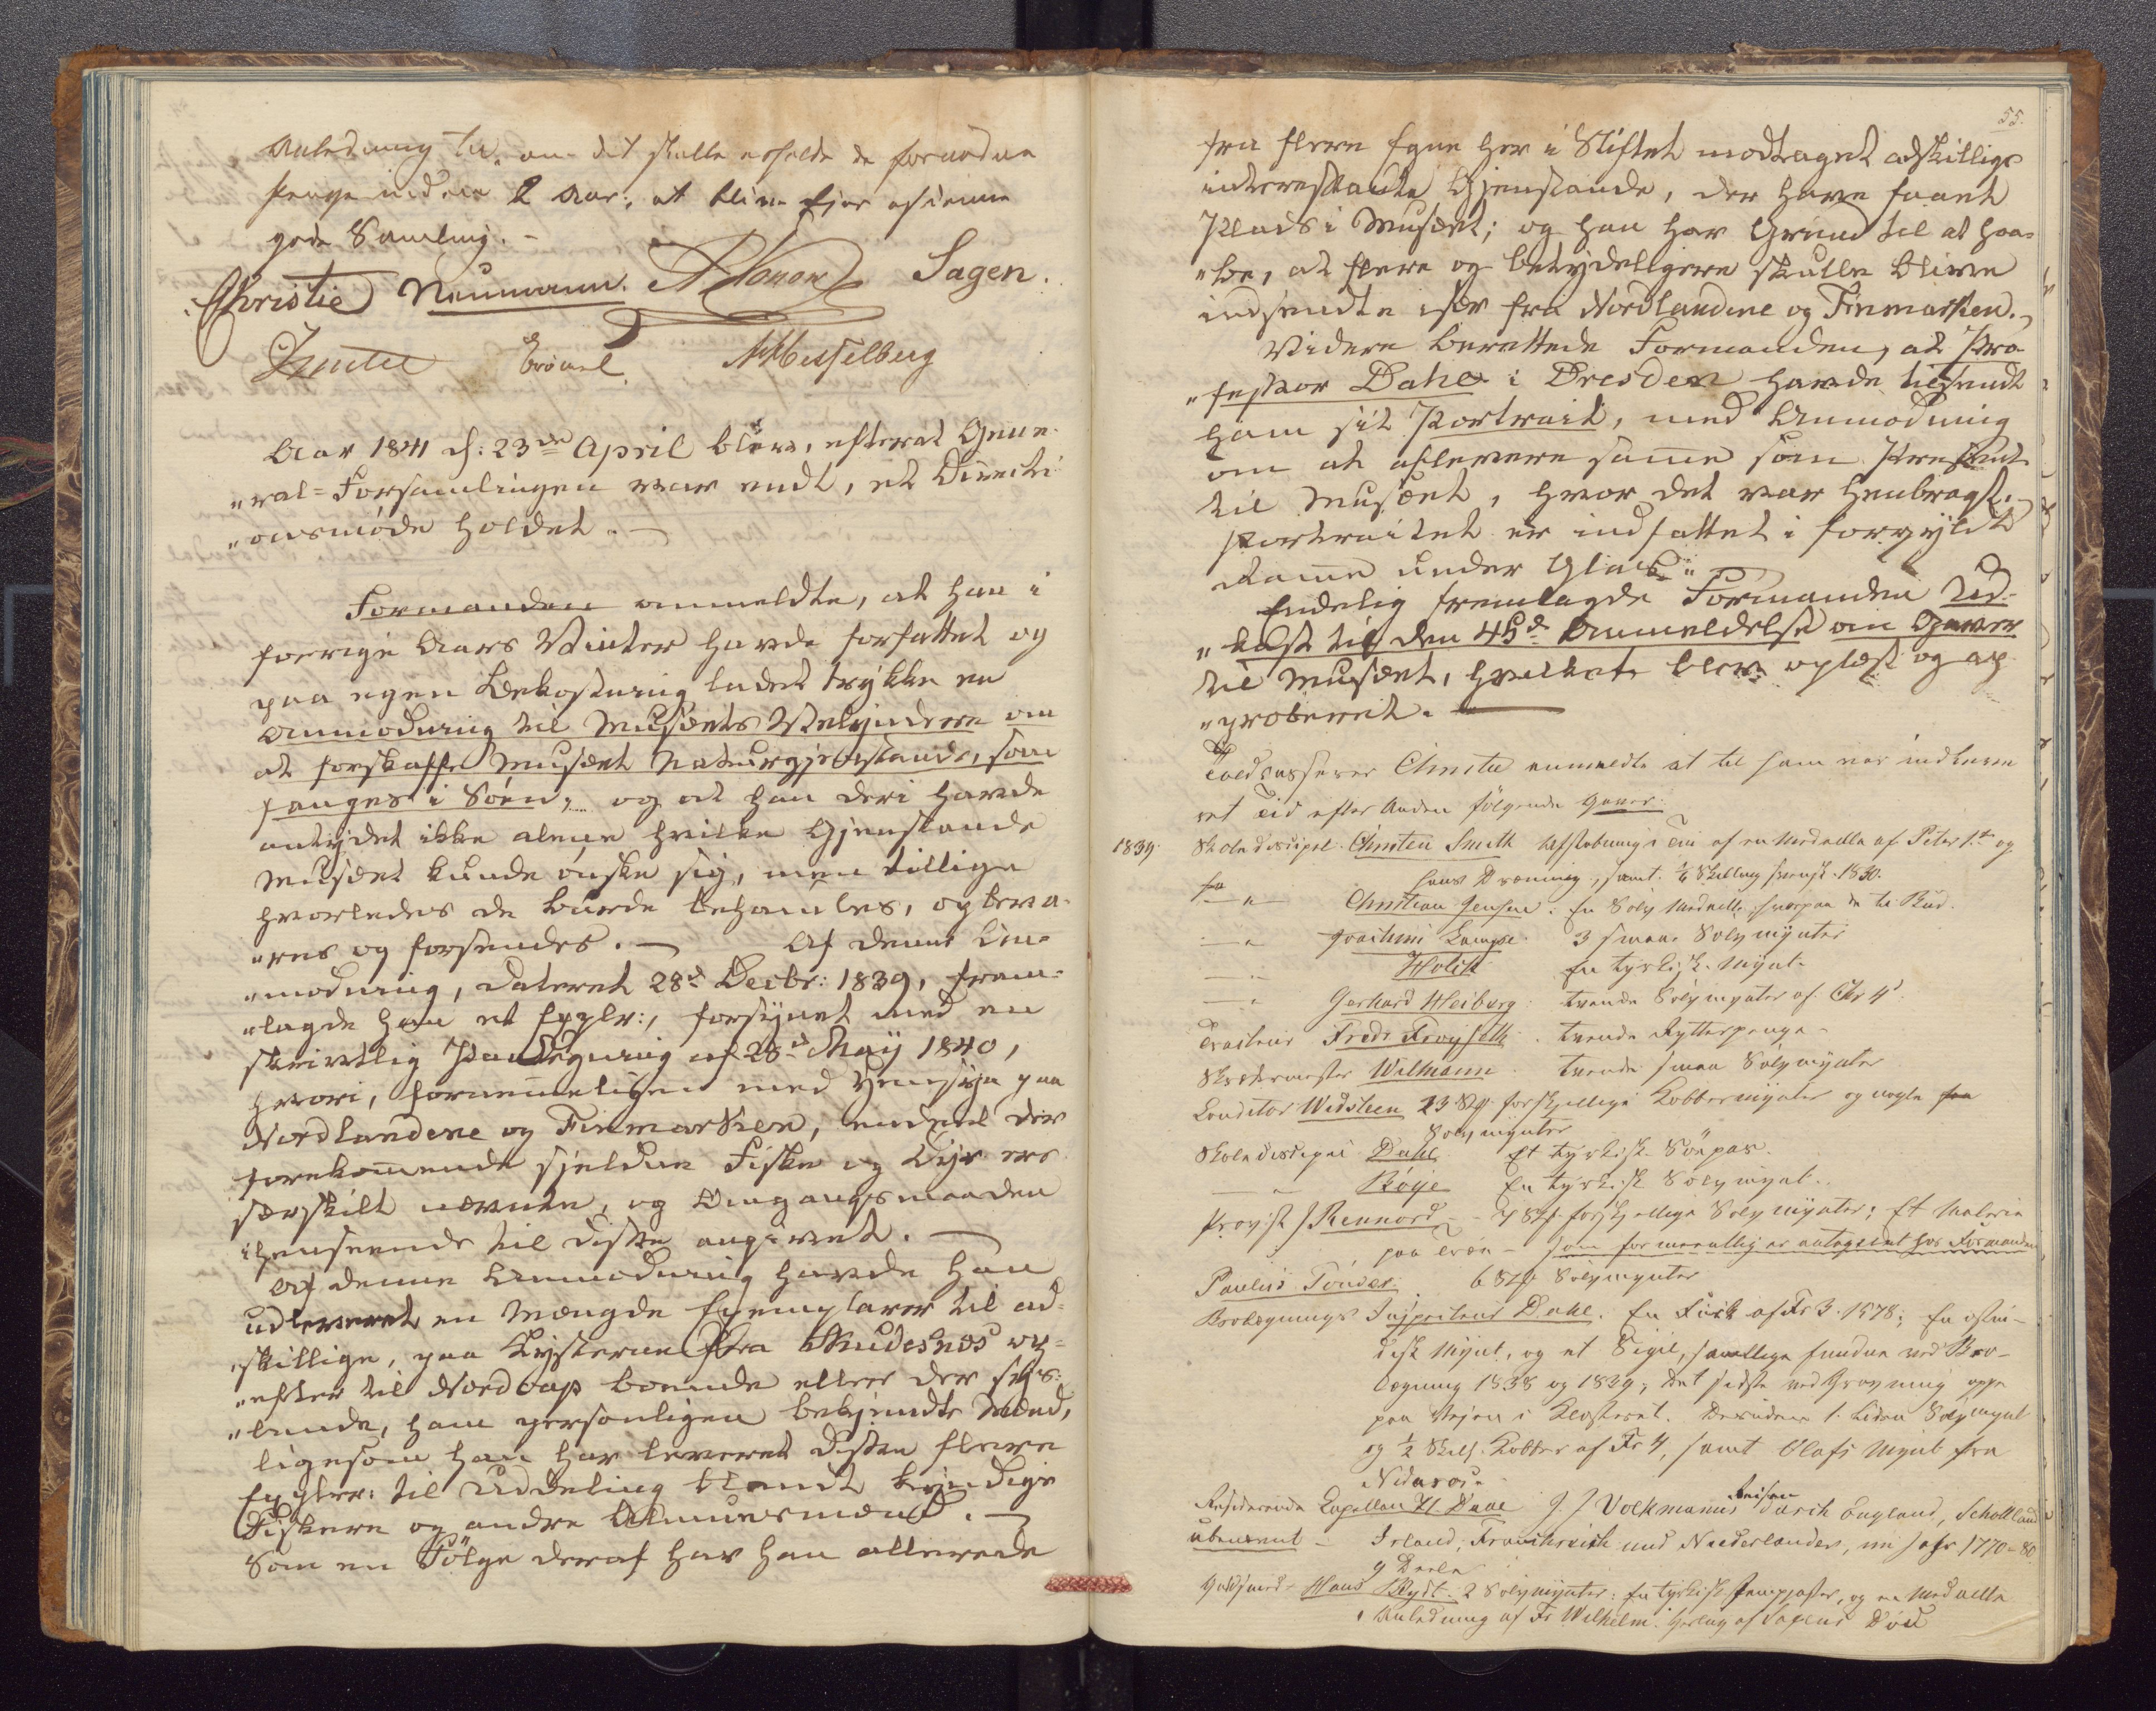 Anledning til, om det skulle erholde de fornødne
Penge inden 2 Aar, at blive Ejer af denne
gode Samling. –
Christie Neumann. Konow Sagen.
Krøvel. Hesselberg
Aar 1841 d: 23de April blev, efterat Gene-
„ral=Forsamlingen var endt, et Directi-
„onsmøde holdet. –
Formanden anmeldte, at han i
forrige Aars Vinter havde forfattet og
paa egen Bekostning ladet trykke en
Anmodning til Musæets Velyndere om
at forskaffe Musæet Naturgjenstande, som
fanges i Søen, og at han deri havde
antydet ikke alene hvilke Gjenstande
Musæet kunde ønske sig, men tillige
hvorledes de burde behandles, opbeva-
„res og forsendes. – Af denne An-
„modning, dateret 28d Decbr: 1839, frem-
„lagde han et Explr:, forsynet med en
skrivtlig Paategning af 28d Maÿ 1840,
hvori, fornemmeligen med Hensyn paa
Nordlandene og Finmarken, endeel der
forekommende sjeldne Fiske og Dyr ere
særskilt nævnte, og Omgangsmaaden
i henseende til disse angivet. –
Af denne Anmodning havde han
udleveret en Mængde Exemplarer til ad-
„skillige, paa Kysterne fra Skudesnæs og
„efter til Nordcap boende eller der sejl-
„ende, ham personligen bekjendte Mænd,
ligesom han har leveret disse flere
Explrr: til Uddeling blandt kyndige
Fiskere og andre Almuesmænd. –
Som en Følge deraf har han allerede
55.
fra flere Egne her i Stiftet modtaget adskillige
interessante Gjenstande, der have faaet
Plads i Musæet; og han har Grund til at haa-
„be, at flere og betydeligere skulle blive
indsendte især fra Nordlandene og Finmarken. –
Videre berettede Formanden, at Pro-
„fessor Dahl i Dresden havde tilsendt
ham sit Portrait, med Anmodning
om at aflevere samme som Present
til Musæet, hvor det var henbragt. –
Portraitet er indfattet i forgyldt
Ramme under Glas. –
Endelig fremlagde Formanden Ud-
„kast til den 45d Anmeldelse om Gaver
til Musæet, hvilket blev oplæst og ap-
„proberet. –
Toldcasserer Christie anmeldte at til ham var indleve
ret Tid efter Anden følgende Gaver:
1839. Skoledisipel Christen Smith Afstøbning i Tin af en Medaille af Peter 1te og
hans Dronning, samt 1/6 Skilling svensk 1830.
– „ – Christian Jensen. En Sølv Medaille, hvorpaa de ti Bud.
– „ Joachim Lampe. 3 smaae Sølvmynter
– „ – Holck En tyrkisk Mynt.
– „ Gerhard Heiberg: tvende Sølvmynter af Chr 4d.
Frede Froyseth. tvende Rytterpenge –
Skrædermester Wilmann. tvende smaa Sølvmynter
Conditor Widsteen 23 Stk forskjellige Kobbermynter og nogle faa
Sølvmynter
Skoledisipel Dahl Et tyrkisk Søepas.
– „ Bøye En tyrkisk Sølvmynt.
Provst Rennord – 4 Stk. forskjellige Sølvmynter; Et Malerie
paa Træe – som formentlig er antegnet hos Formanden
Paulus Tønder. 6 Stk Sølvmynter
Brolægnings Inspecteur Dahl. En af Fr 3. 1578; En ostin-
disk Mynt, og et Sigil, samtlige fundne ved Bro-
lægning 1838 og 1839; det sidste ved Gravning oppe
paa Veien i Klosteret. Desuden 1 liden Sølvmynt
og 1/2 Skill. Kobber af Fr 4, samt Olafs Mynt fra
Nidaros.
Residerende Capellan H. Daae J. J Volkmanns Reisen durch England, Schottland
ubenævnt – Irland, Franchreich und Niederlanden, im Jahr 1770-80.
9 Deele
Guldsmed Hans Blydt. 2 Sølvmynter: En tyrkisk og en Medaille
i Anledning af Fr Wilhelm Hertug af Død